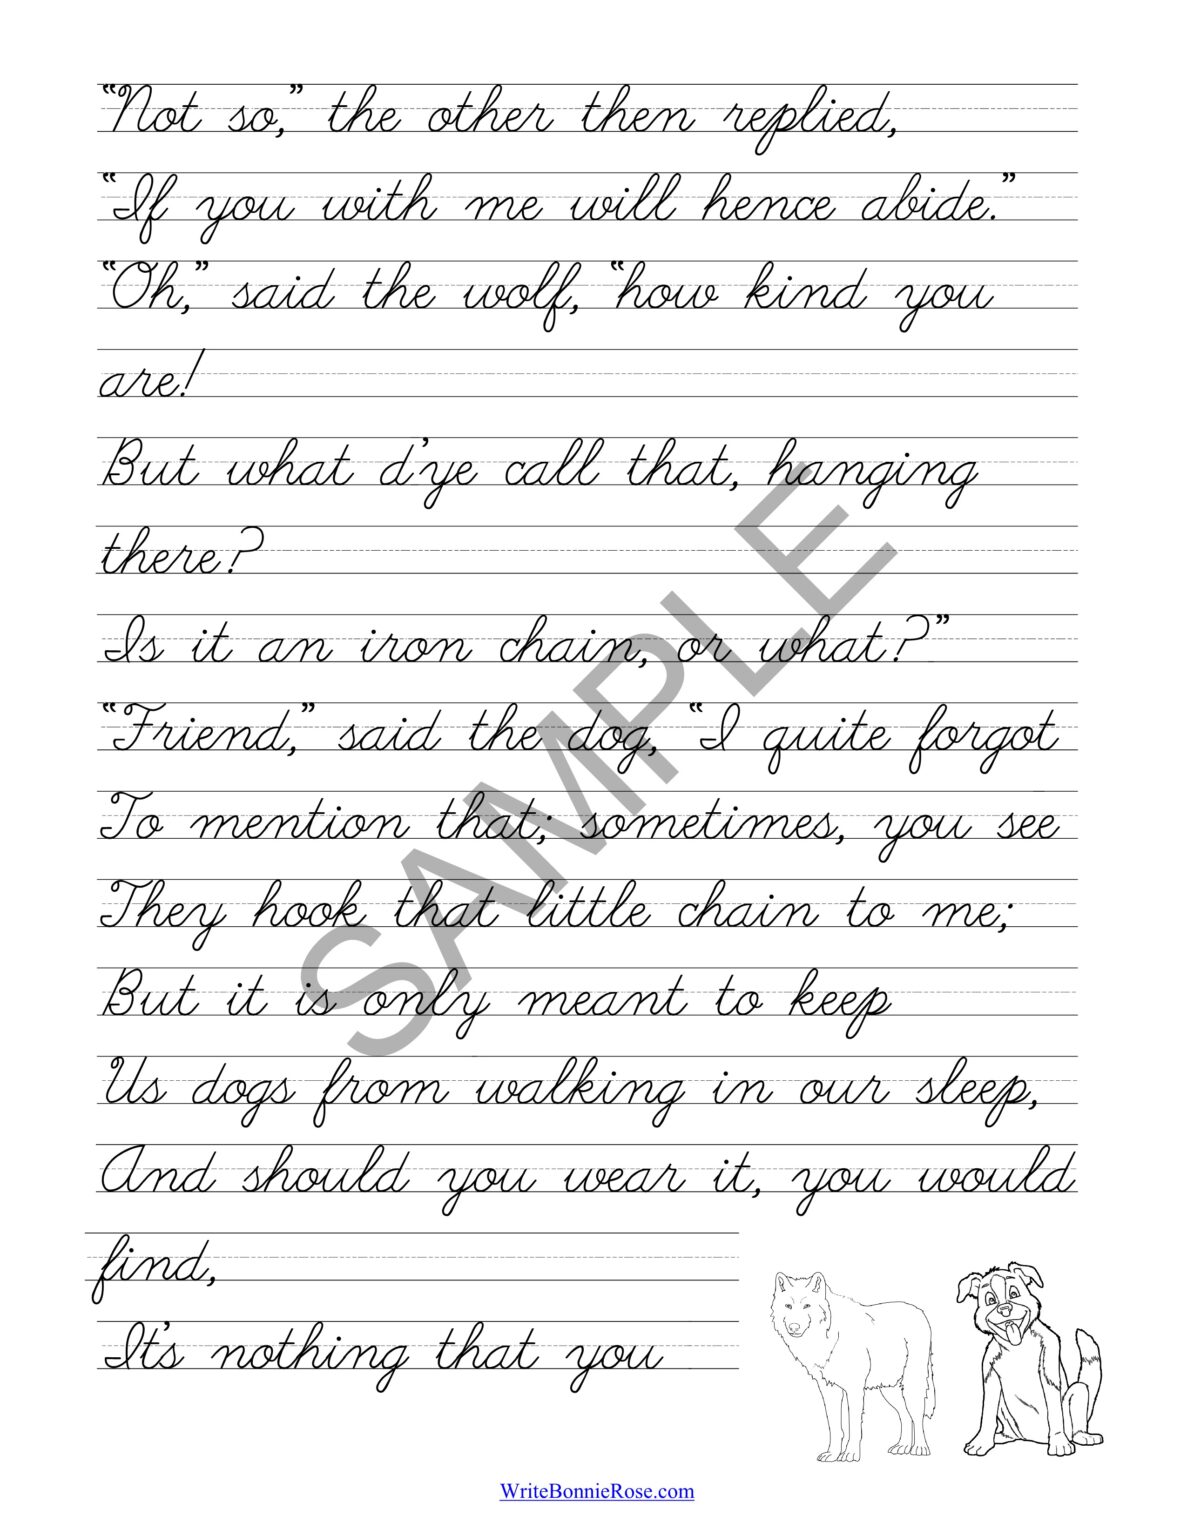 “Not so,” the other then replied,
“If you with me will hence abide.”
“Oh,” said the wolf, “how kind you
are!
But what d’ye call that, hanging
there?
Is it an iron chain, or what?”
“Friend,” said the dog, “I quite forgot
To mention that; sometimes, you see
They hook that little chain to me;
But it is only meant to keep
Us dogs from walking in our sleep,
And should you wear it, you would
find,
It’s nothing that you
SAMPLE
WriteBonnieRose.com